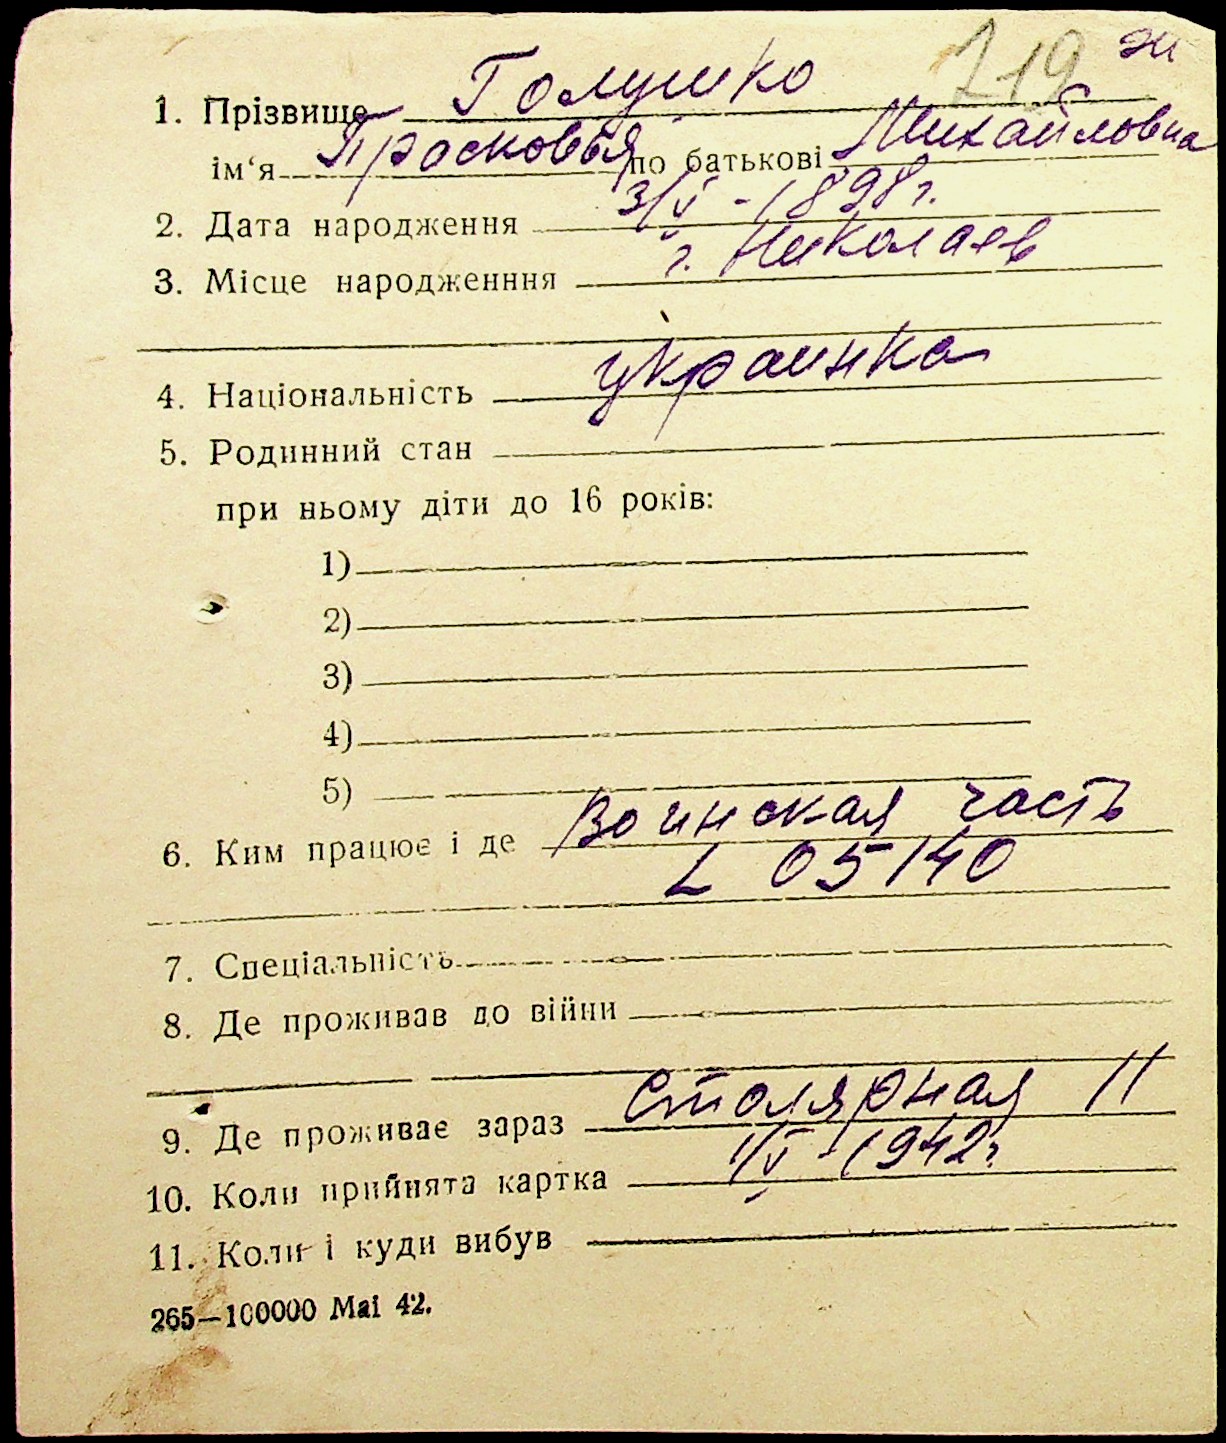 119 эи
1. Прізвище Голушко
ім‘я Прасковья по батькові Михайловна
2. Дата народження 3/V - 1898 г.
3. Місце народженння г. Николаев
4. Національність украинка
5. Родинний стан
при ньому діти до 16 років:
1)
2)
3)
4)
5)
6. Ким працює і де Воинская часть
L 05140
7. Спеціальність
8. Де проживав до війни
9. Де проживає зараз Столярная 11
10. Коли прийнята картка 1/V - 1942 г.
11. Коли і куди вибув
265—100000 Mai 42.